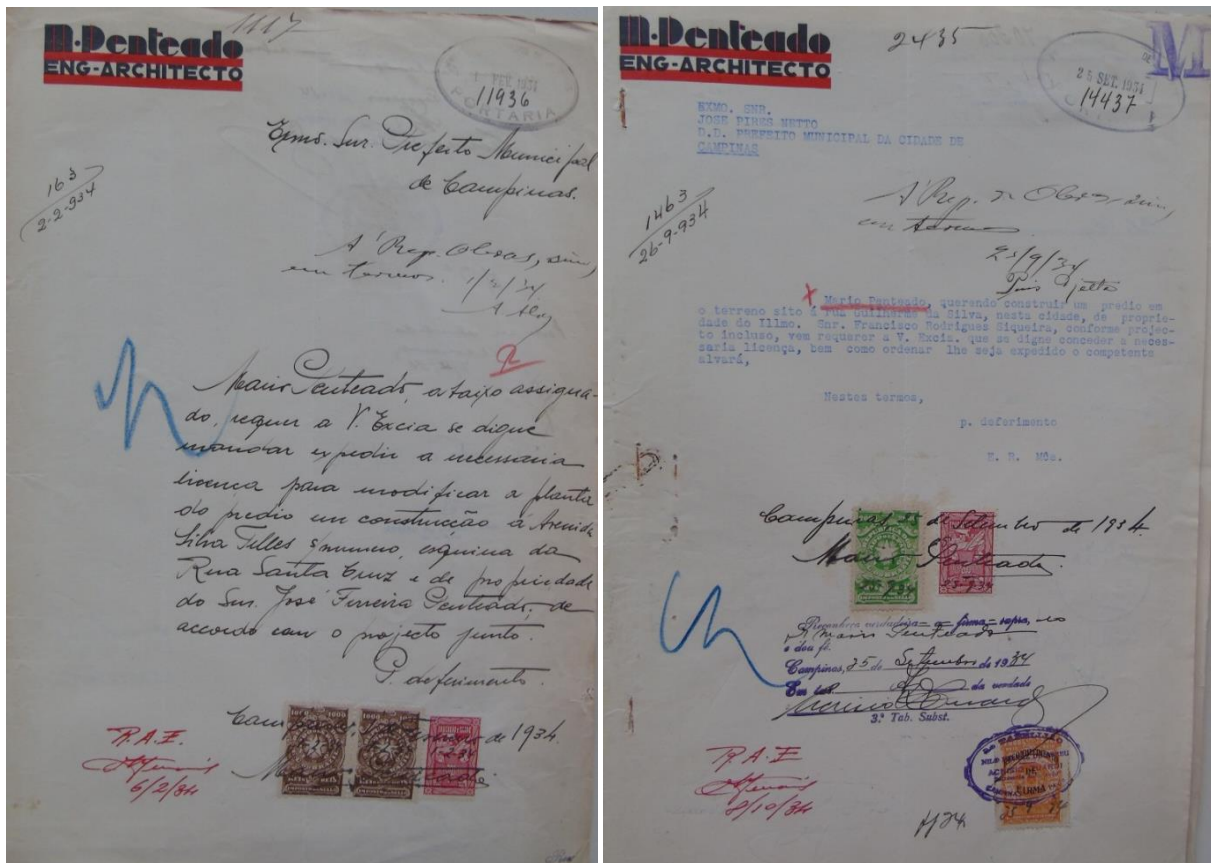 M. Penteado
ENG-ARCHITECTO
1117
1 FEV 1934
11936
PORTARIA
Exmo. Snr. Prefeito Municipal
de Campinas.
163
2-2-934
A' Rep. Obras, sim,
em termos.
1/2/34
Mario Penteado, abaixo assigna-
do, requer a V. Excia se digne
mandar expedir a necessaria
licença para modificar a planta
do predio em construcção á Avenida
Silva Telles s/numero, esquina da
Rua Santa Cruz e de propriedade
do Snr. José Ferreira Penteado, de
accordo com o projecto junto.
P. deferimento.
Campinas, de 1934.
Mario Penteado
R.A.E.
6/2/34
M. Penteado
ENG-ARCHITECTO
2435
M
25 SET. 1934
14437
EXMO. SNR.
JOSE PIRES NETTO
D.D. PREFEITO MUNICIPAL DA CIDADE DE
CAMPINAS
1463
26-9-934
A' Rep. de Obras, sim,
em termos
25/9/34
Pires Netto
x Mario Penteado, querendo construir um predio em
o terreno sito á rua Guilherme da Silva, nesta cidade, de proprie-
dade do Illmo. Snr. Francisco Rodrigues Siqueira, conforme projec-
to incluso, vem requerer a V. Excia. que se digne conceder a neces-
saria licença, bem como ordenar lhe seja expedido o competente
alvará,
Nestes termos,
p. deferimento
E. R. Mce.
Campinas, 25 de Setembro de 1934.
Mario Penteado.
Reconheço verdadeira a firma supra,
Mario Penteado
e dou fé.
Campinas, 25 de Setembro de 1934
Em test. da verdade
3.º Tab. Subst.
DE
FIRMA
25 9 34
R.A.E
8/10/34